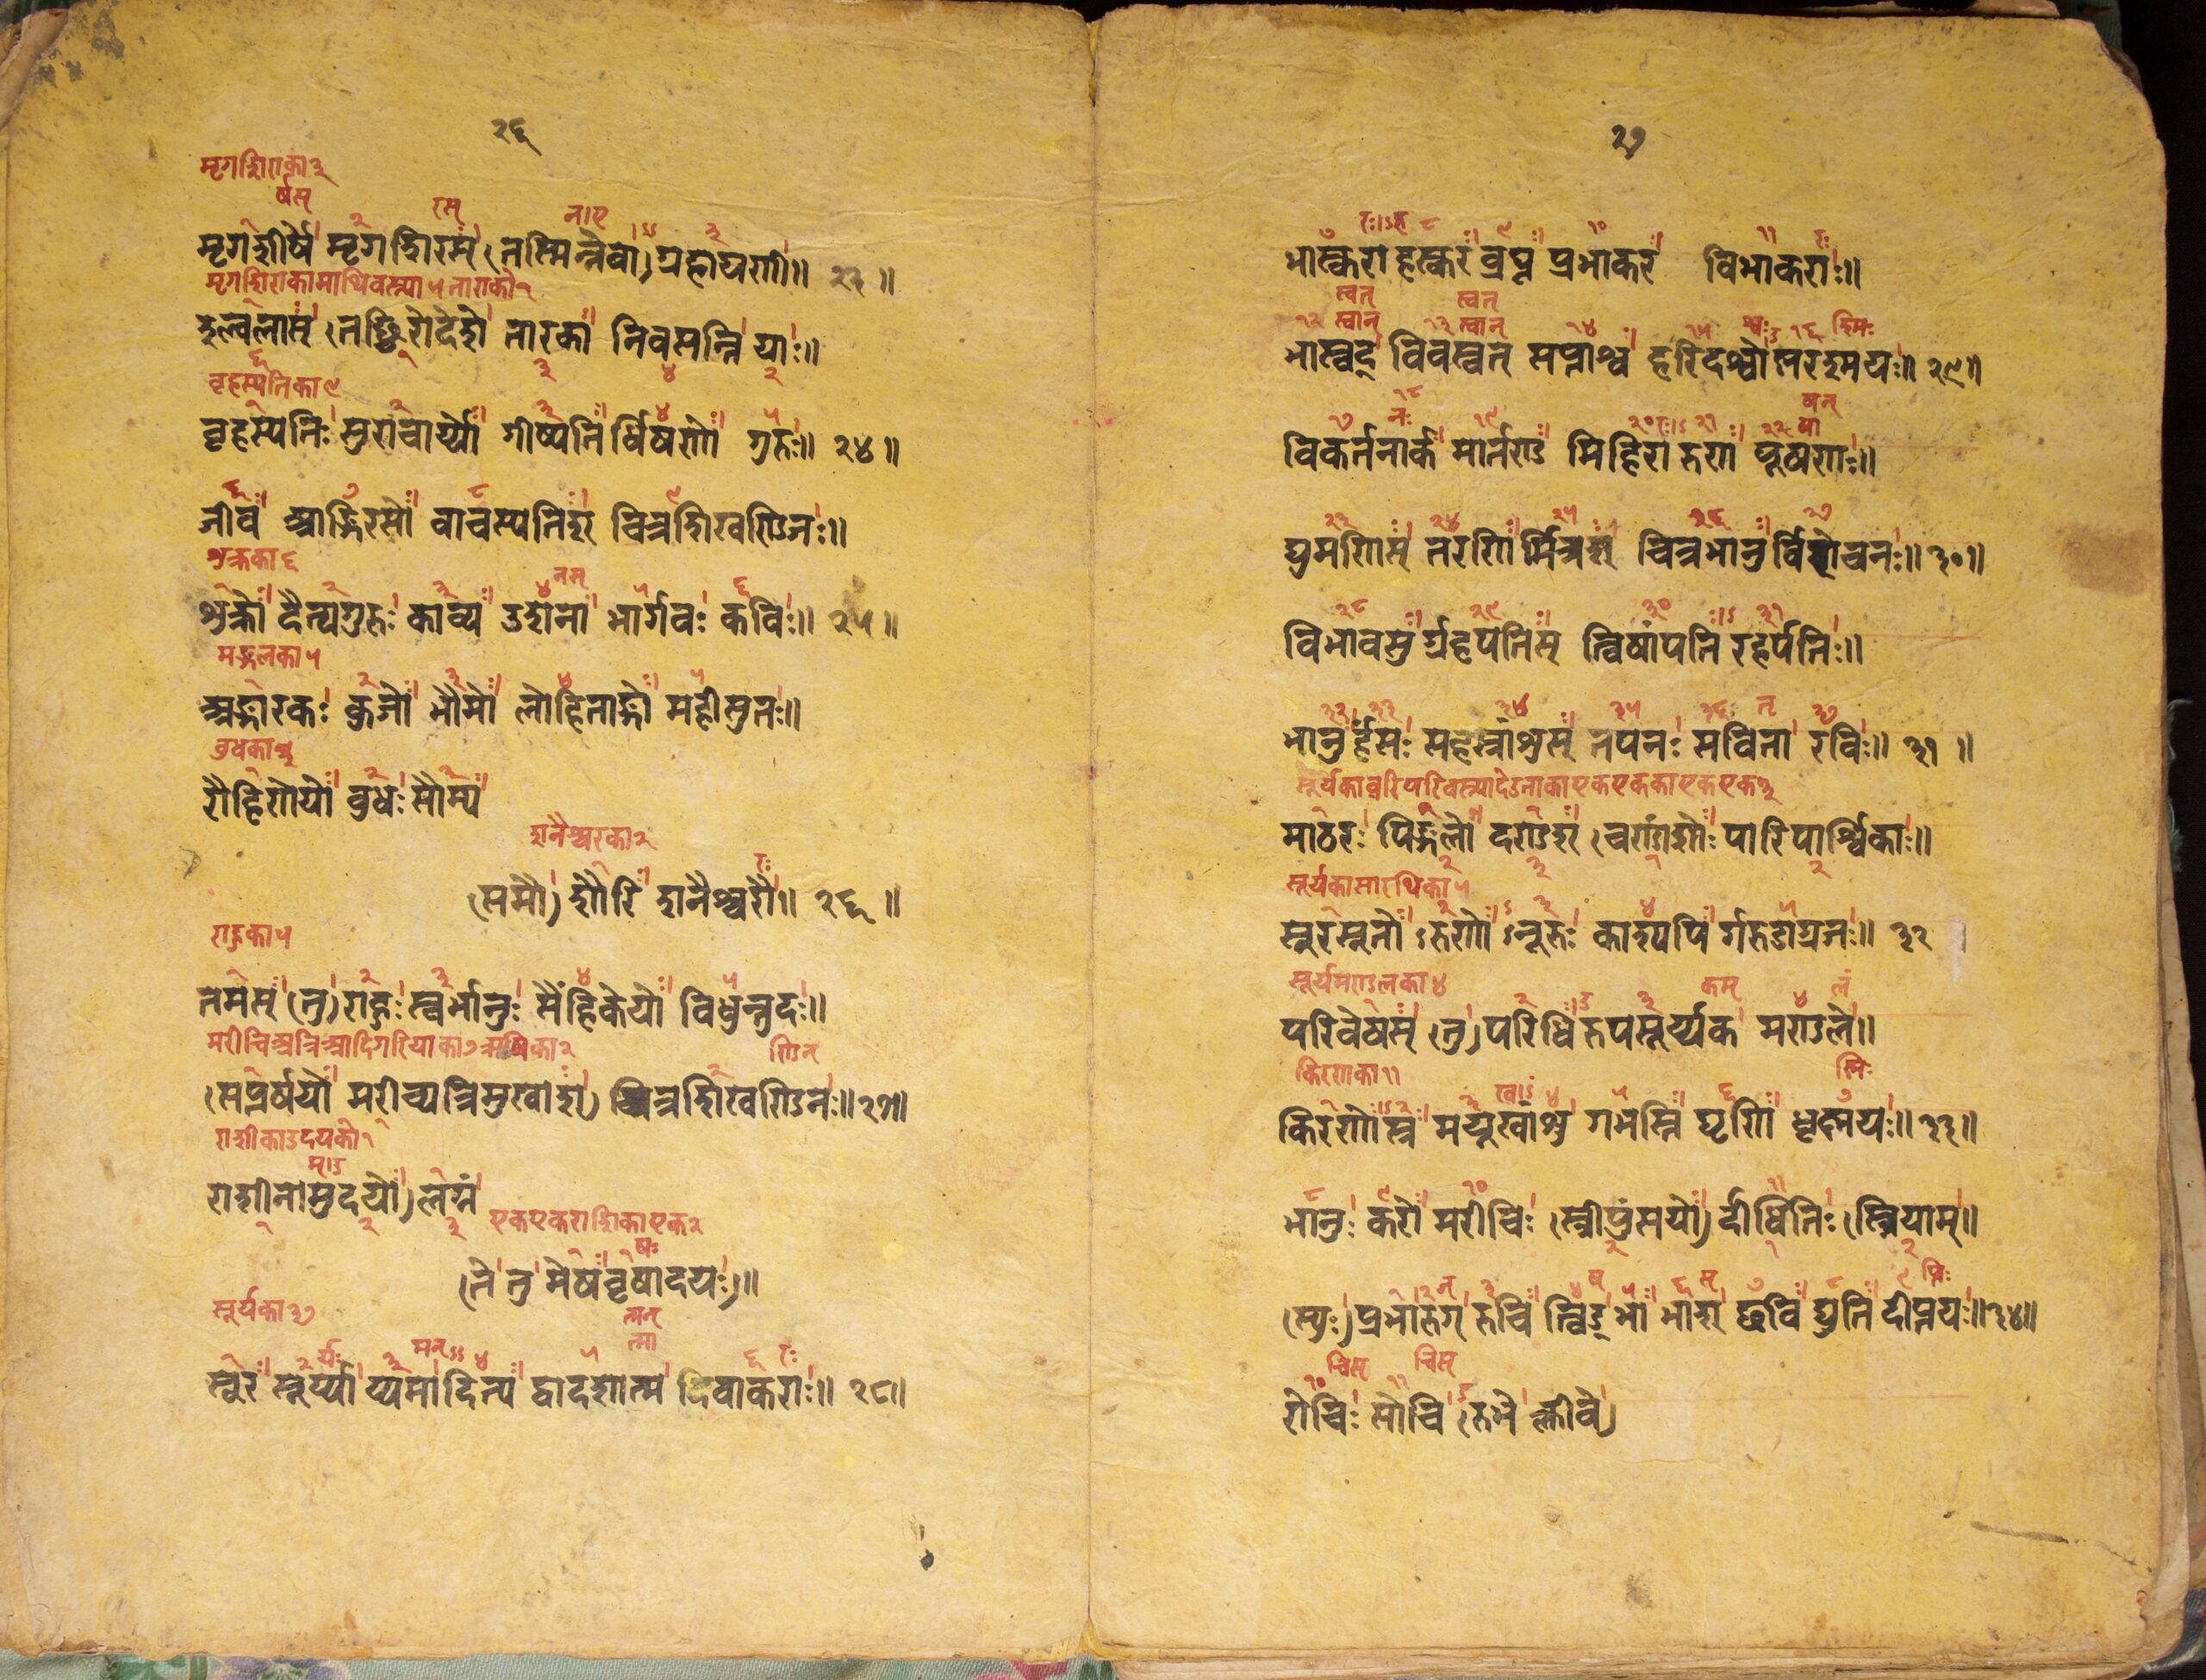 २६
मृगशिराका३
र्षस्
रस्
मृगशीर्षं मृगशिरस् (तस्मिन्नेवा) ग्रहायणी॥ २३॥
मृगशिराकामाथिवस्न्या५ताराको१
इल्वलास् (तच्छिरोदेशे तारका निवसन्ति याः॥
बृहस्पतिका९
बृहस्पतिः सुराचार्य्यो गीष्पति र्धिषणो गुरुः॥ २४॥
जीव आङ्गिरसो वाचस्पतिश् चित्रशिखण्डिजः॥
शुक्रका६
नस्
शुक्रो दैत्यगुरुः काव्य उशना भार्गवः कविः॥ २५॥
मङ्गलका५
अङ्गारकः कुजो भौमो लोहिताङ्गो महीसुतः॥
बुधका३
रौहिणेयो बुधः सौम्य
शनैश्चरका२
रः
(समौ) शौरि शनैश्चरौ॥ २६॥
राहुका५
तमस् (तु) राहुः स्वर्भानुः सैंहिकेयो विधुन्तुदः॥
ण्डिन्
(सप्तर्षयो मरीच्यत्रिमुखाश्) चित्रशिखण्डिनः॥ २७॥
राशीकाउदयको१
राशीनामुदयो) लग्नं
एकएकराशिकाएक२
षः
(ते तु मेषवृषादयः)॥
सूर्यका३७
त्मन्
त्मा
र्यः
मन्
रः
सूर सूर्य्या र्य्यमादित्य द्वादशात्म दिवाकराः॥ २८॥
२७
भास्करा हस्कर ब्रध्न प्रभाकर विभाकराः॥
स्वत् स्वत्
स्वान् स्वान्
श्वः
श्मिः
भास्वद् विवस्वत् सप्ताश्व हरिदश्वो ष्णरश्मयः॥ २९॥
नः
षन्
षा
विकर्तनार्क मार्तण्ड मिहिरा रुण पूषणः॥
द्युमणिस् तरणि र्मित्रश् चित्रभानु र्विरोचनः॥ ३०॥
विभावसु र्ग्रहपतिस् त्विषांपति रहर्पतिः॥
भानु र्हंसः सहस्रांशुस् तपनः सविता रविः॥ ३१॥
माठरः पिङ्गलो दण्डश् (चण्डांशोः पारिपार्श्विकाः॥
सूर्यकासारथिका५
सूरसूतो ऽरुणो ऽनूरुः काश्यपि र्गरुडाग्रजः॥ ३२
सूर्यमण्डलका४
कम्
लं
परिवेषस् (तु) परिधि रुपसूर्य्यक मण्डले॥
किरणका११
श्निः
किरणोस्र मयूखांशु गभस्ति घृणि धृश्नयः॥ ३३॥
भानुः करो मरीचिः (स्त्रीपुंसयो) र्दीधितिः (स्त्रियाम्॥
प्तिः
(स्युः) प्रभारुग् रुचि त्विड् भा भाश् छवि द्युति दीप्तयः॥ ३४॥
चिस् चिस्
रोचिः सोचि (रुभे क्लीवे)